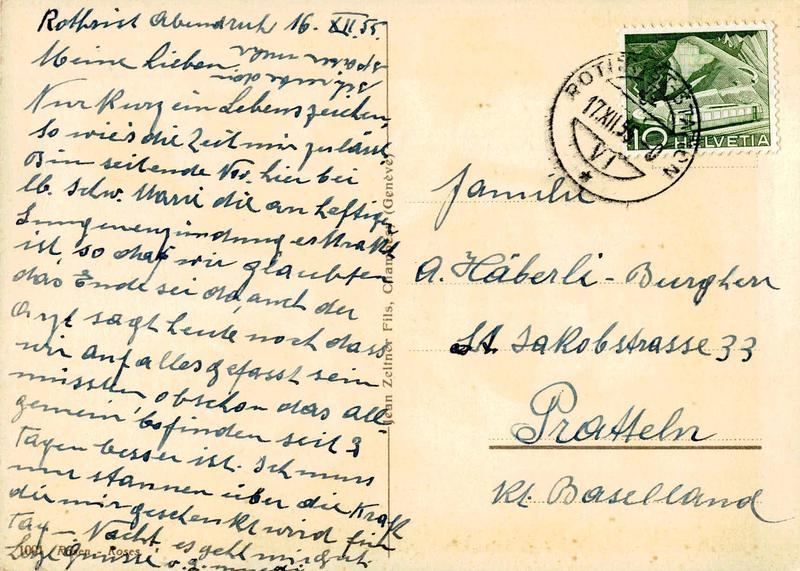 Rothrist Abendruh 16. XII.55.
Meine Lieben.
Nur kurz ein Lebenszeichen,
so wie's die Zeit mir zulässt
Bin seitende Nov. hier bei
lb. Schw. Marie die an heftiger
Lungenenzündung erkrankt
ist, so dass wir glaubten
das Ende sei da, auch der
Arzt sagt heute noch dass
wir auf alles gefasst sein
müssten, obschon das all-
gemein befinden seit 2
Tagen besser ist. Ich muss
nur staunen über die Kraft
die mir geschenkt wird für
Tag - Nacht, es geht mir gut.
Grüsse
100 Rosen - Roses
Jean Zeltner Fils, (Genève)
ROTHRIST STATION
17.XII.55
VI
10 HELVETIA
Familie
A. Häberli-Burgherr
St. Jakobstrasse 33
Pratteln
Kt. Baselland